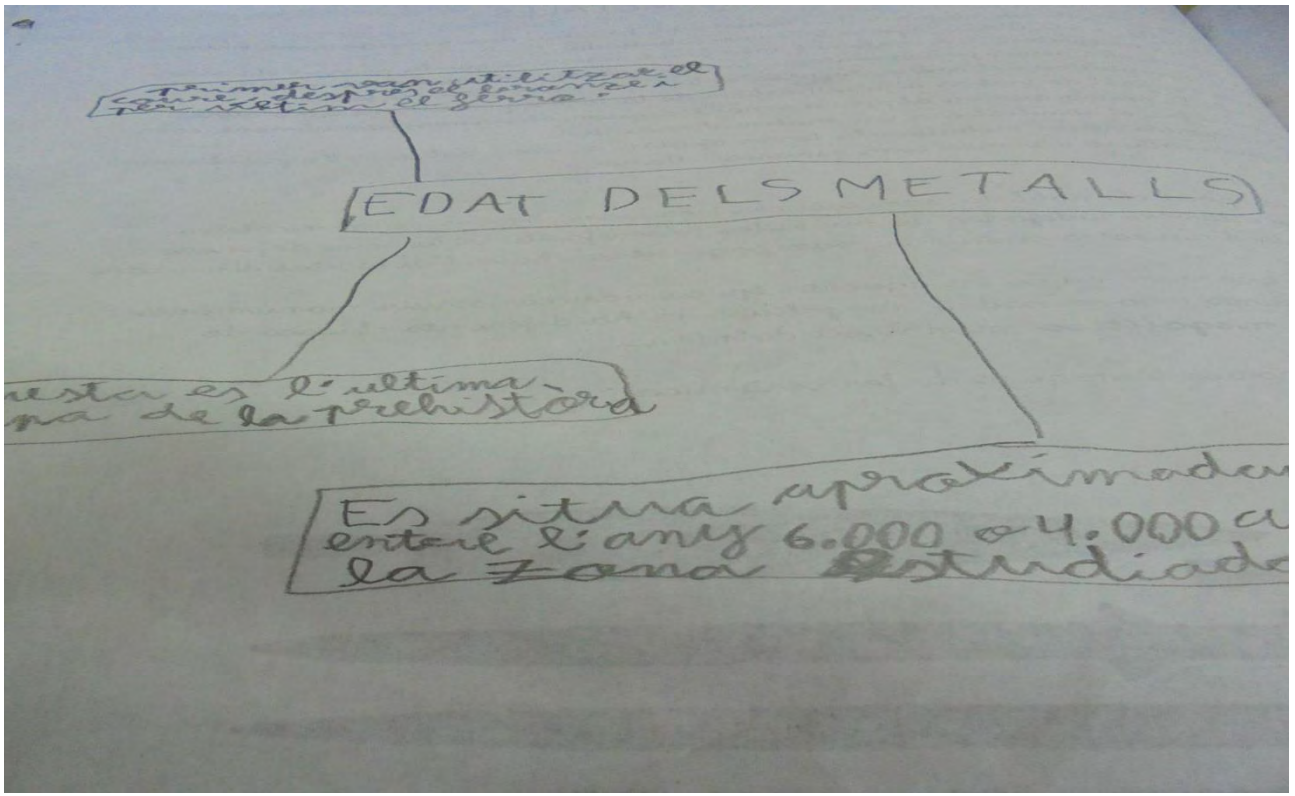 primer van utilitzar el
coure, despres el bronze i
per últim el ferro.
EDAT DELS METALLS
esta es l'ultima
pa de la prehistòria
Es situa aproximada
entre l'any 6.000 o 4.000 a
la zona estudiada